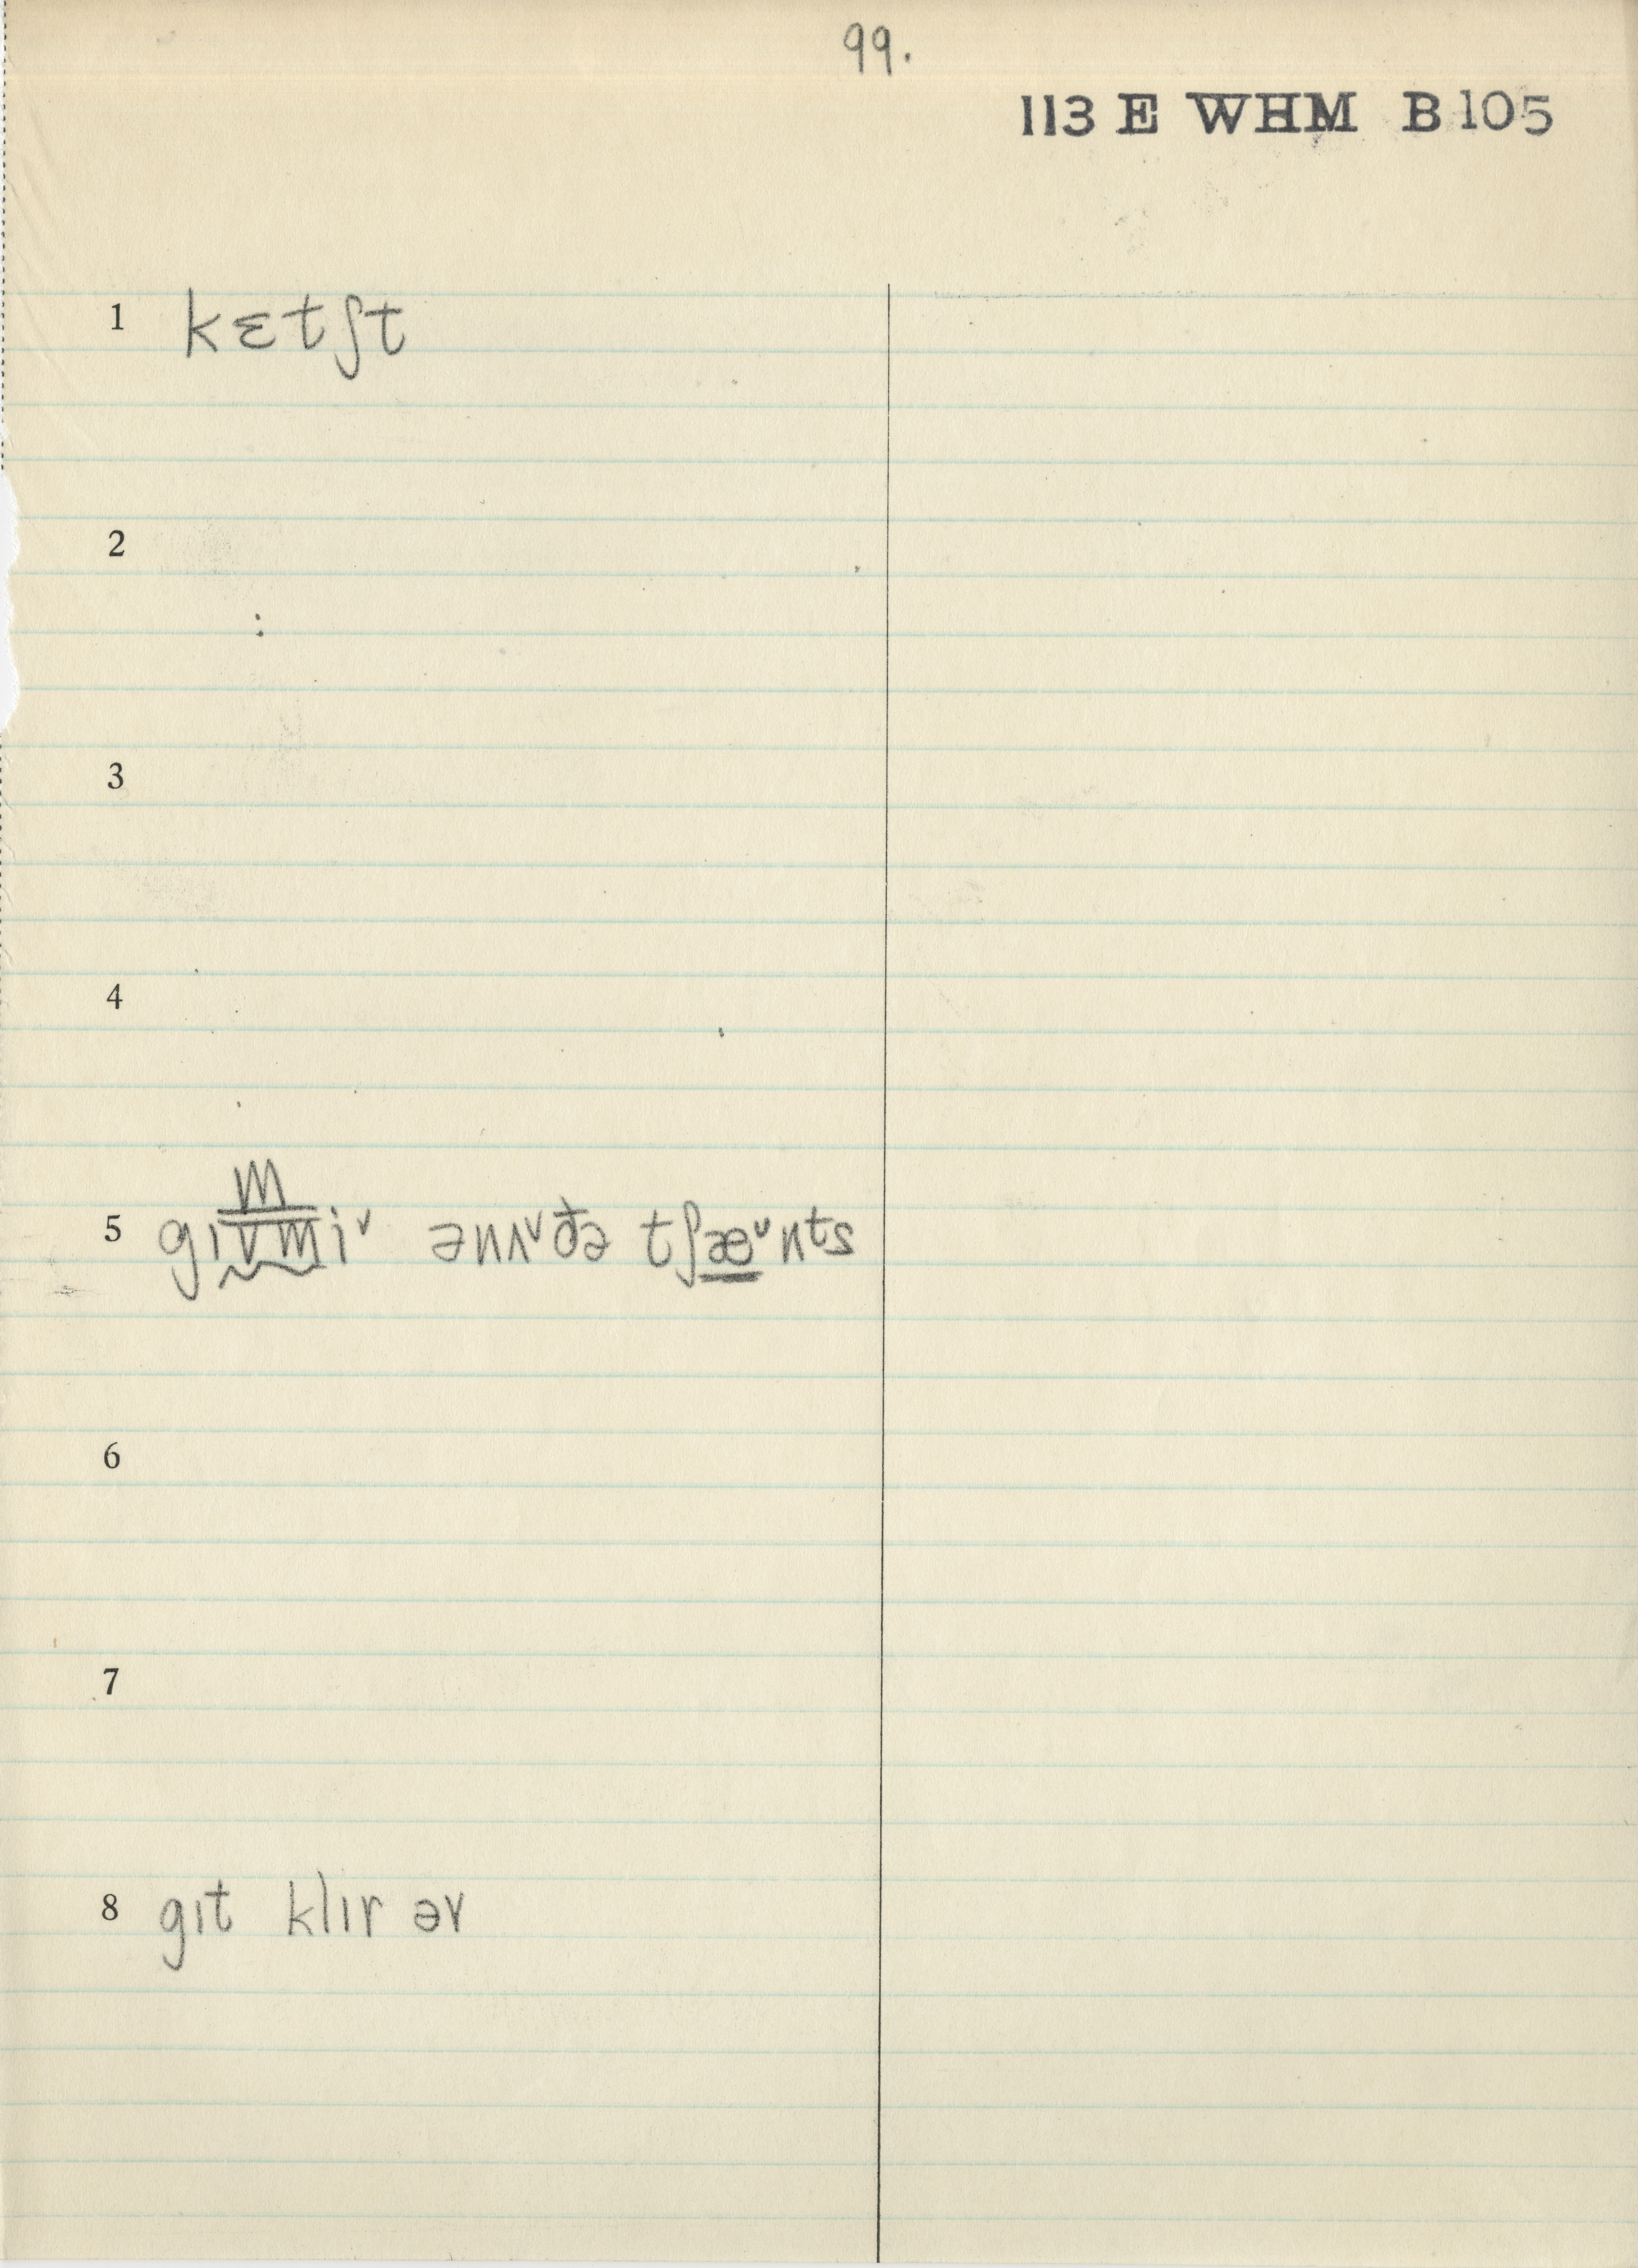 99.
113 E WHM B105
1 kɛtʃt
2
:
3
4
m
5 gɪvmiᵛ ənʌᵛðə tʃæᵛnts
6
7
8 gɪt klɪr əv